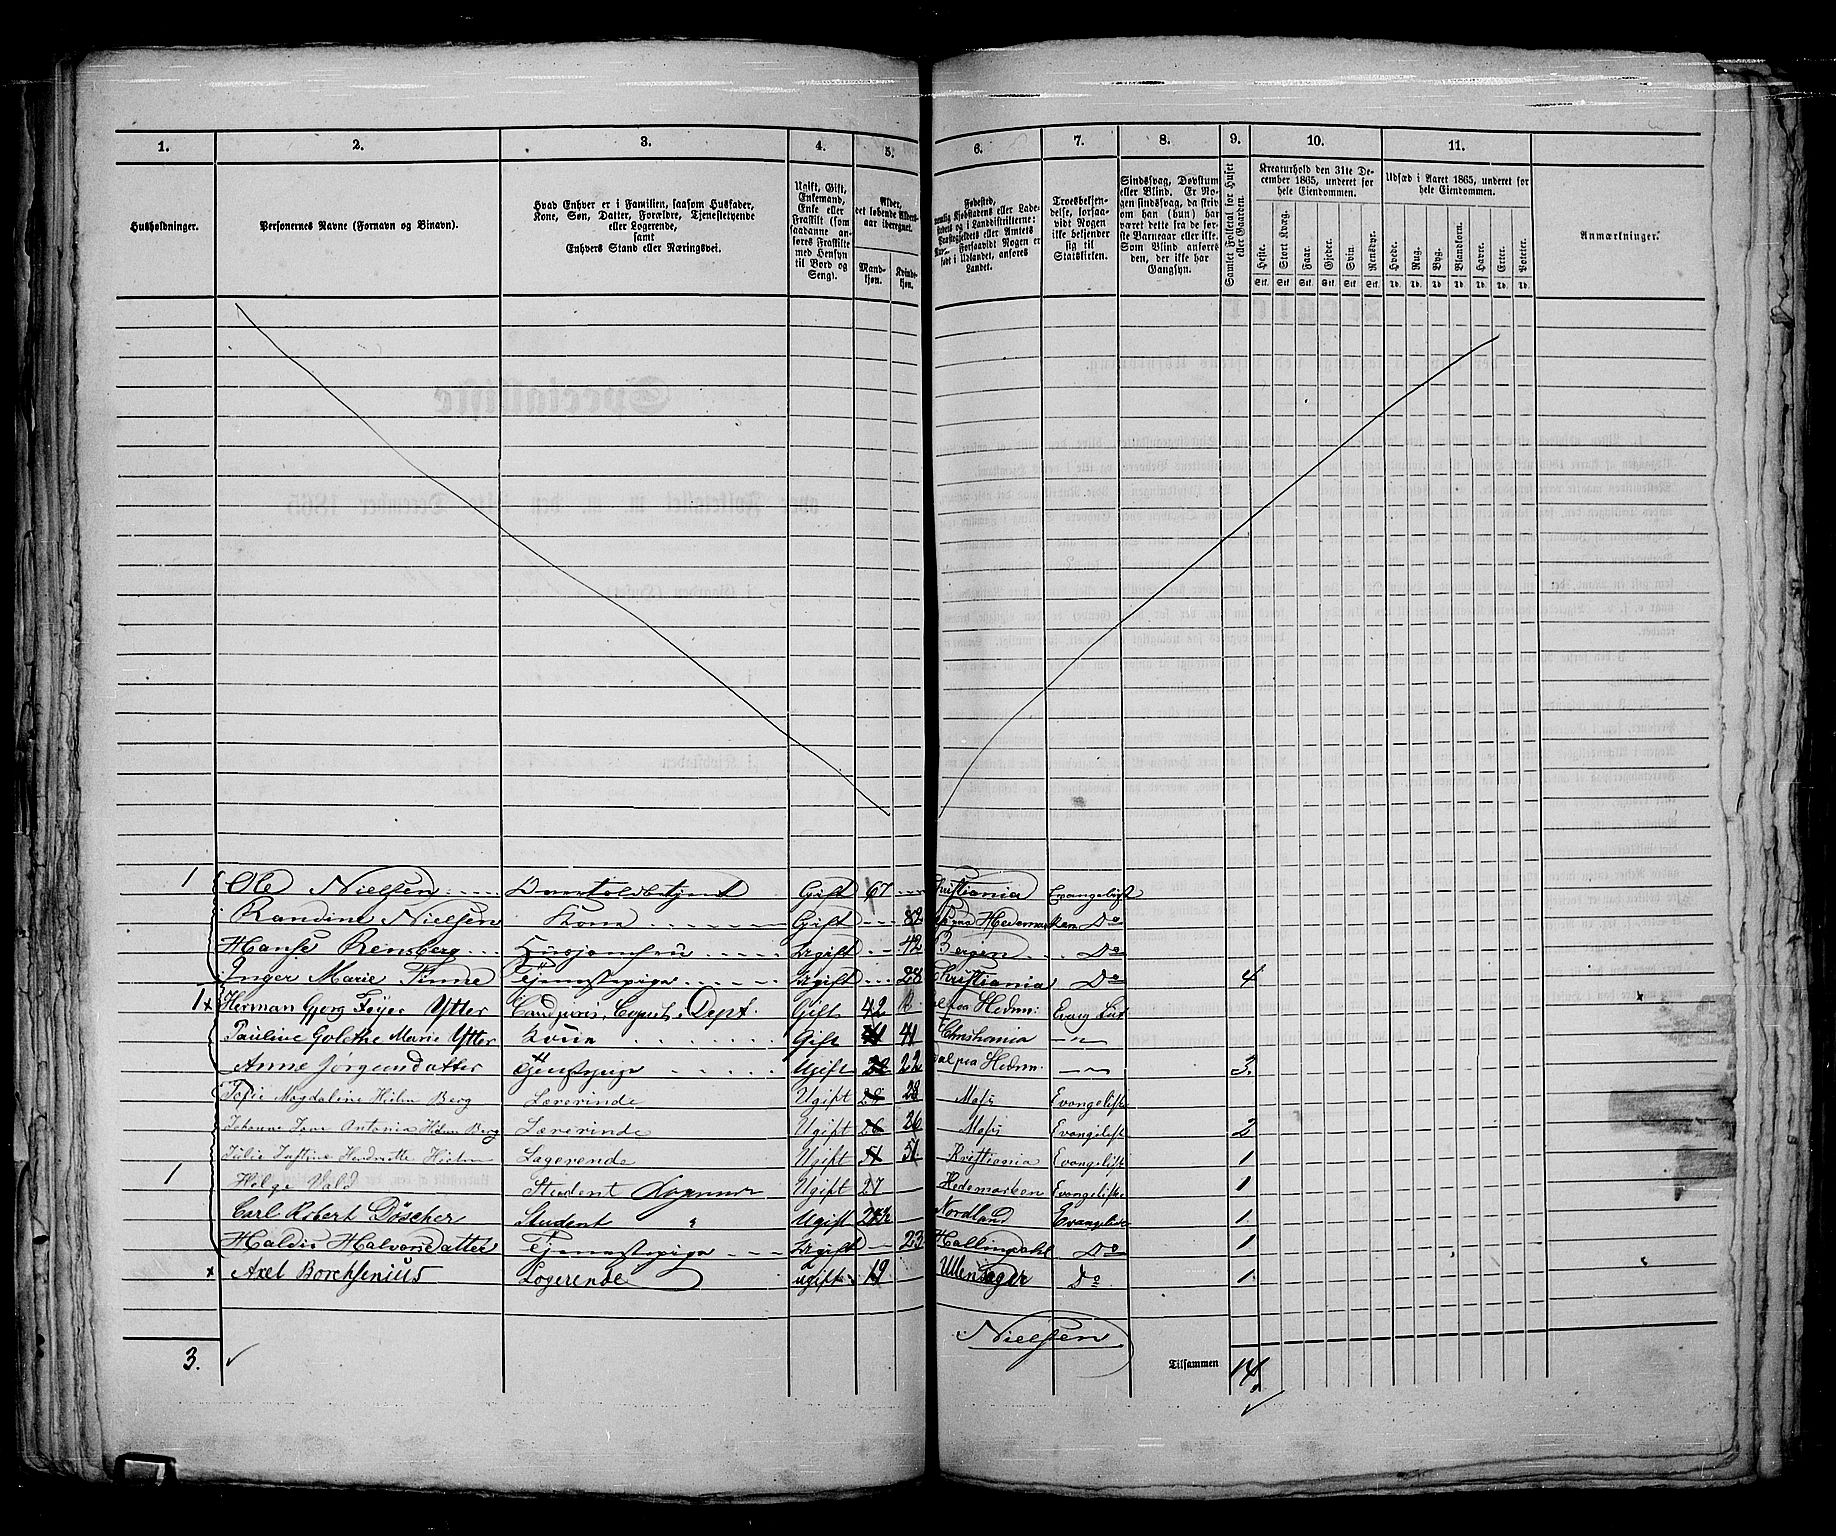 1. 2. 3. 4. 5. 6. 7. 8. 9. 10. 11.
Husholdninger.
Personernes Navne (Fornavn og Binavn).
Hvad Enhver er i Familien, saasom Husfader,
Kone, Søn, Datter, Forældre, Tjenestetyende
eller Logerende,
samt
Enhvers Stand eller Næringsvei.
Ugift, Gift,
Enkemand,
Enke eller
Fraskilt (som
saadanne an-
føres Fraskilte
med Hensyn
til Bord og
Seng).
Alder,
det løbende Alders-
aar iberegnet.
Mand-
kjøn.
Kvinde-
kjøn.
Fødested,
nemlig Kjøbstadens eller Lade-
stedets og i Landdistrikterne:
Præstegjeldets eller Amtets
Navn. Forsaavidt Nogen er
født i Udlandet, anføres
Landet.
Troesbekjen-
delse, forsaa-
vidt Nogen
ikke bekjender
sig til
Statskirken.
Sindssvag, Døvstum
eller Blind. Er No-
gen sindssvag, da skriv
om han (hun) har
været dette fra de før-
ste Barneaar eller ikke.
Som Blind anføres
den, der ikke har
Gangsyn.
Samlet Folketal for Huset
eller Gaarden.
Kreaturhold den 31te De-
cember 1865, underet for
hele Eiendommen.
Heste. Stort Kvæg. Faar. Gjeder. Svin. Rensdyr.
Stk. Stk. Stk. Stk. Stk. Stk.
Udsæd i Aaret 1865, underet for
hele Eiendommen.
Hvede. Rug. Byg. Blandkorn. Havre. Erter. Poteter.
Td. Td. Td. Td. Td. Td. Td.
Anmærkninger.
1 Ole Nielsen Gift 67 Christiania Evangelisk
Randine Nielsen Kone Gift 82 Hedemarken Do
Hanse Rensberg Ugift 42 Bergen Do
Inger Marie Finne Tjenestepige Ugift 28 Christiania Do 4
1 x Herman Gjerg Føyer Ytter Dept. Gift 42 Hedem: Evang Lut x
Pauline Golethe Marie Ytter Kone Gift 41 41 Christiania —"—
Anne Jørgensdatter Tjenestepige Ugift 22 22 Hedem. —"— 3.
Magdalene Holm Berg Lærerinde Ugift 28 28 Moss Evangelisk
Johanne Antonia Holm Berg Lærerinde Ugift 26 26 Moss Evangelisk 2
Julie Justine Holm Logerende Ugift 51 51 Kristiania Evangelisk 1
1 Helge Vold Student Ugift 27 Hedemarken Evangelisk 1
Carl Robert Döscher Student " Ugift Nordland Evangelisk 1.
Halvorsdatter Tjenestepige Ugift 23 Hallingdahl Do 1
x Axel Borchsenius Logerende ugift 19 Ullensager Do 1.
Nielsen
3. Tilsammen 14